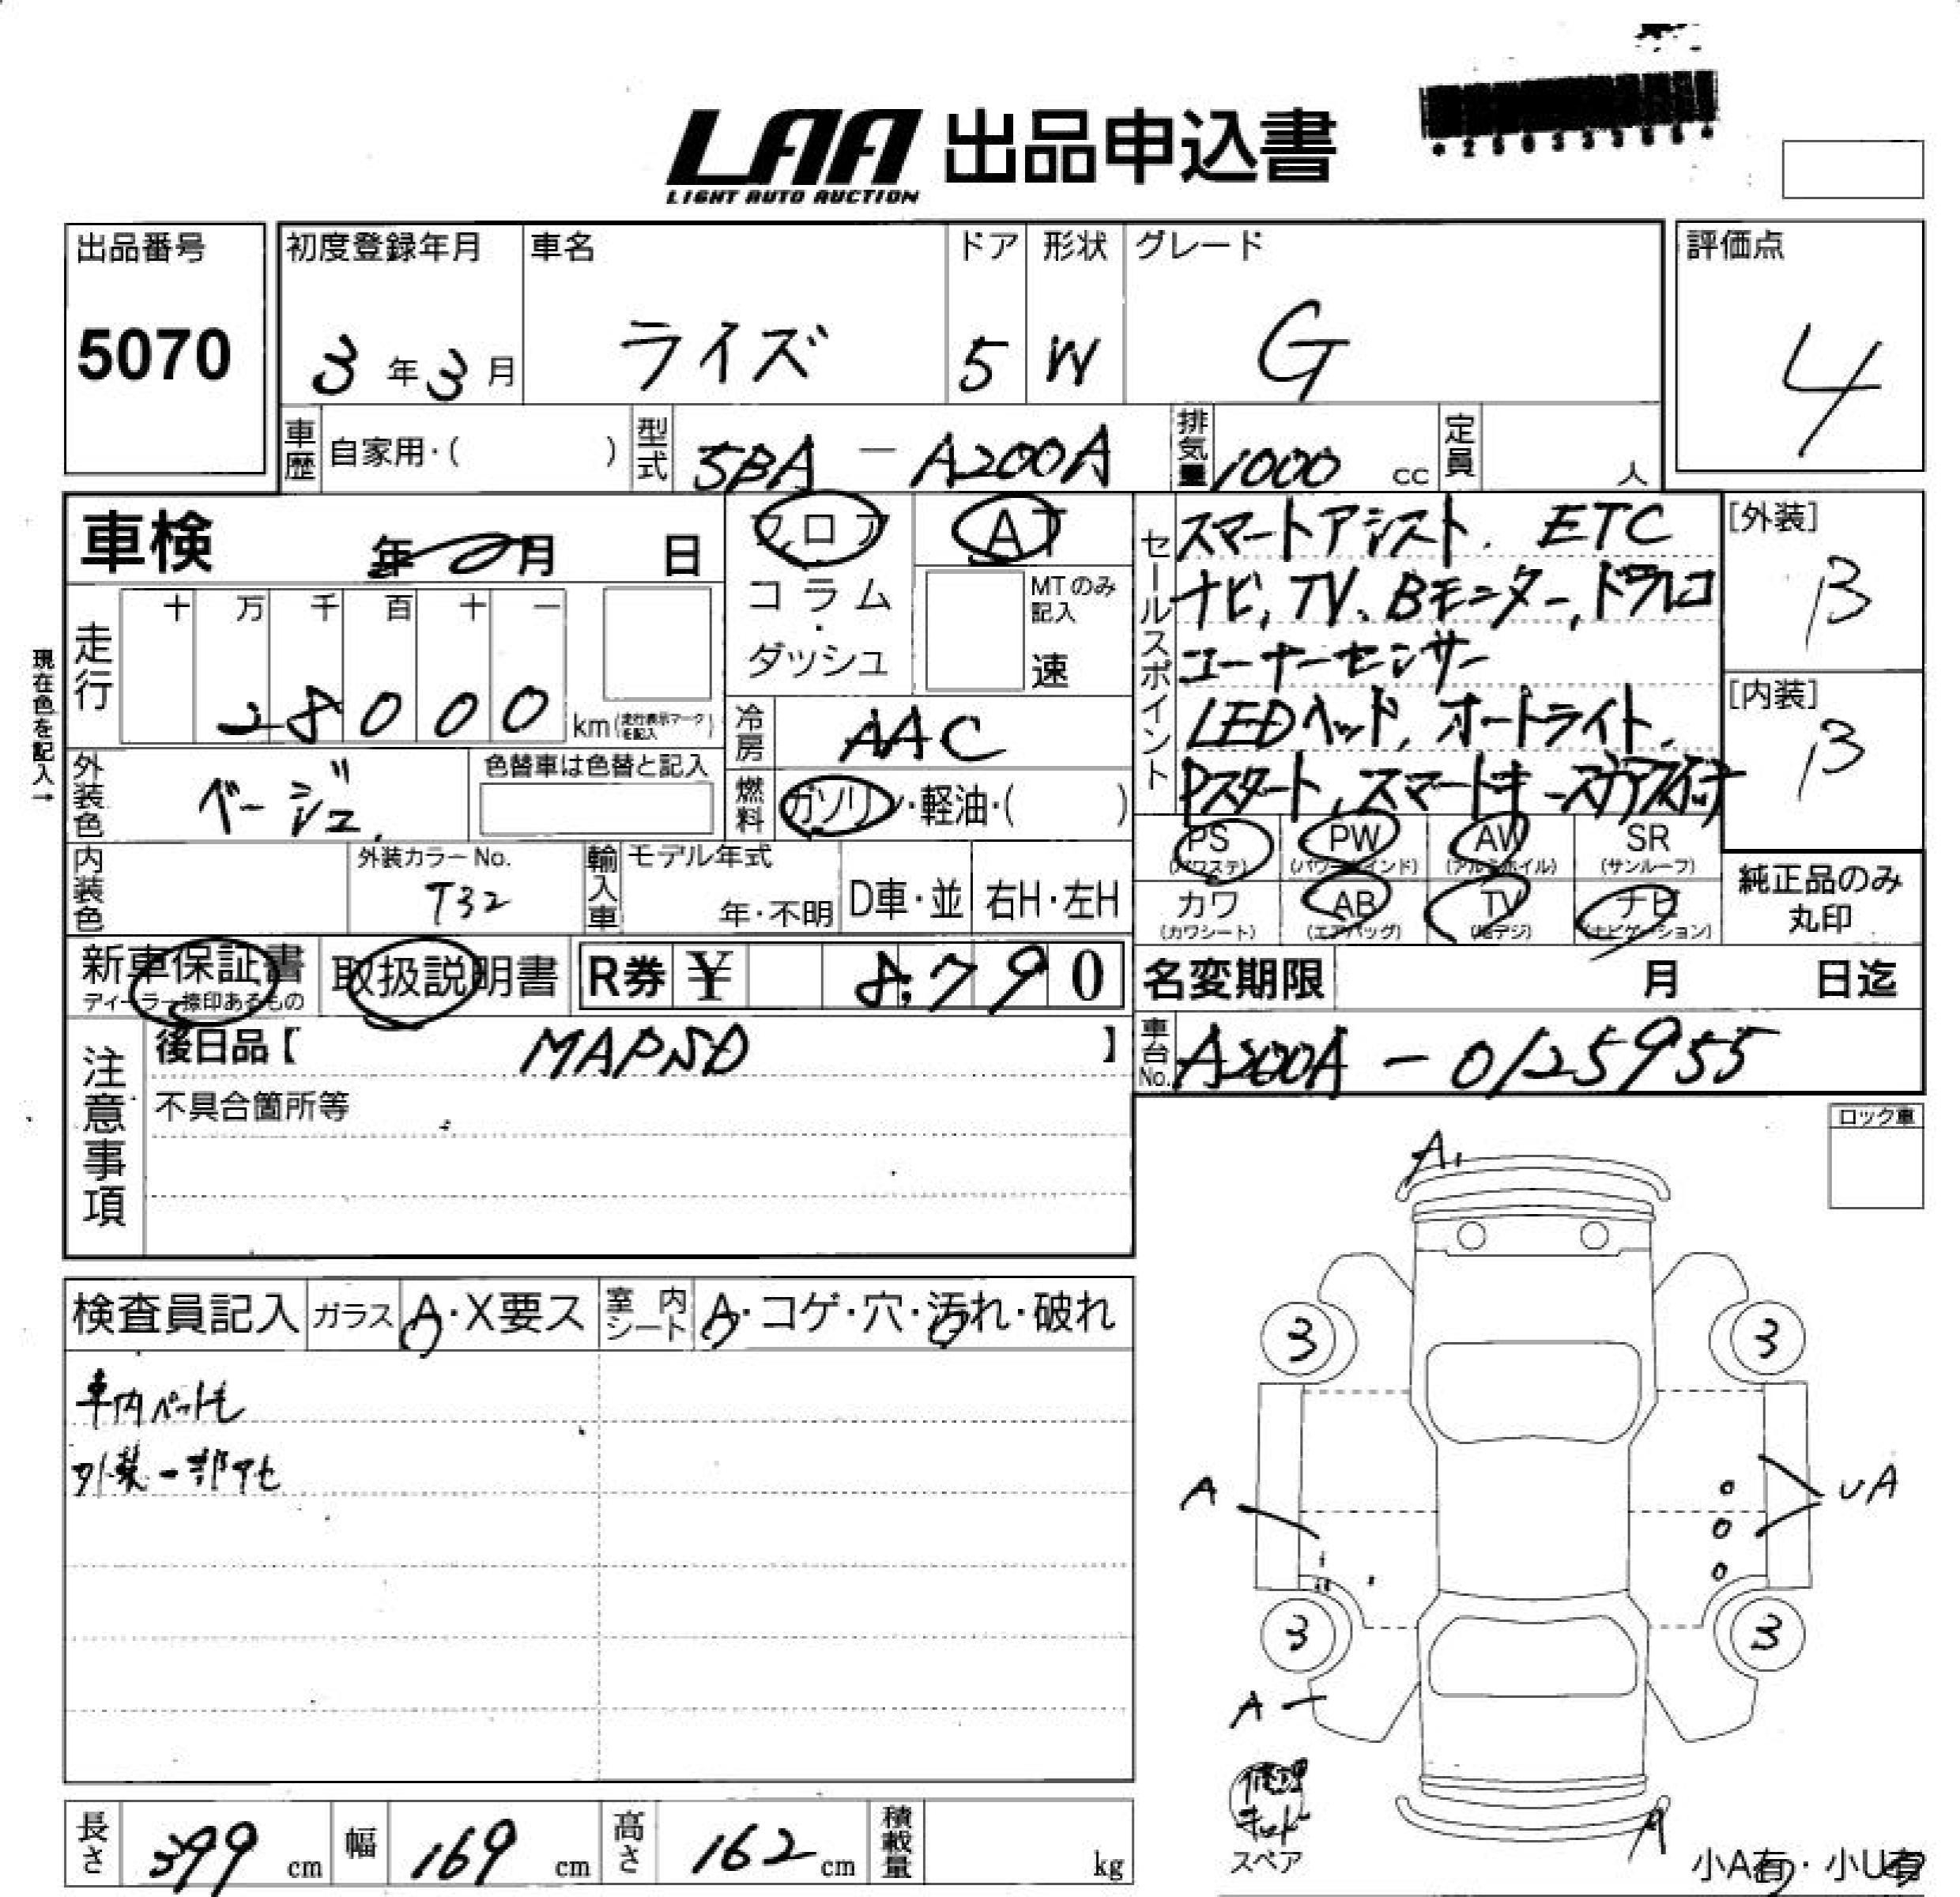 LAA 出品申込書
LIGHT AUTO AUCTION
出品番号 初度登録年月 車名 ドア 形状 グレード 評価点
5070 3年3月 ライズ 5 W G 4
車歴 自家用・( ) 型式 5BA-A200A 排気量 1000 cc 定員 人
車検 年 月 日
フロア AT
コラム・ダッシュ
MTのみ記入 速
セールスポイント
スマートアシスト. ETC
ナビ, TV, Bモニター, ドラレコ
コーナーセンサー
LEDヘッド, オートライト,
Pスタート, スマートキー
[外装] B
[内装] B
現在色を記入→
走行 十 万 千 百 十 一
28000 km(走行表示マークを記入)
冷房 AAC
外装色 ベージュ 色替車は色替と記入
燃料 ガソリン・軽油・( )
PS (パワステ) PW (パワーウインド) AW (アルミホイル) SR (サンルーフ)
カワ (カワシート) AB (エアバッグ) TV (地デジ) ナビ (ナビゲーション)
純正品のみ丸印
内装色 外装カラーNo. T32 輸入車 モデル年式 年・不明 D車・並 右H・左H
新車保証書 ディーラー捺印あるもの 取扱説明書 R券 ¥ 8,790
名変期限 月 日迄
車台No. A200A-0125955
注意事項
後日品【 MAPSD 】
不具合箇所等
ロック車
A1
検査員記入 ガラス A・X要ス 室内シート A・コゲ・穴・汚れ・破れ
車内ペット毛
外装一部アセ
3 3
A UA
3 3
A
修理キット
スペア
A
小A有・小U有
長さ 399 cm 幅 169 cm 高さ 162 cm 積載量 kg